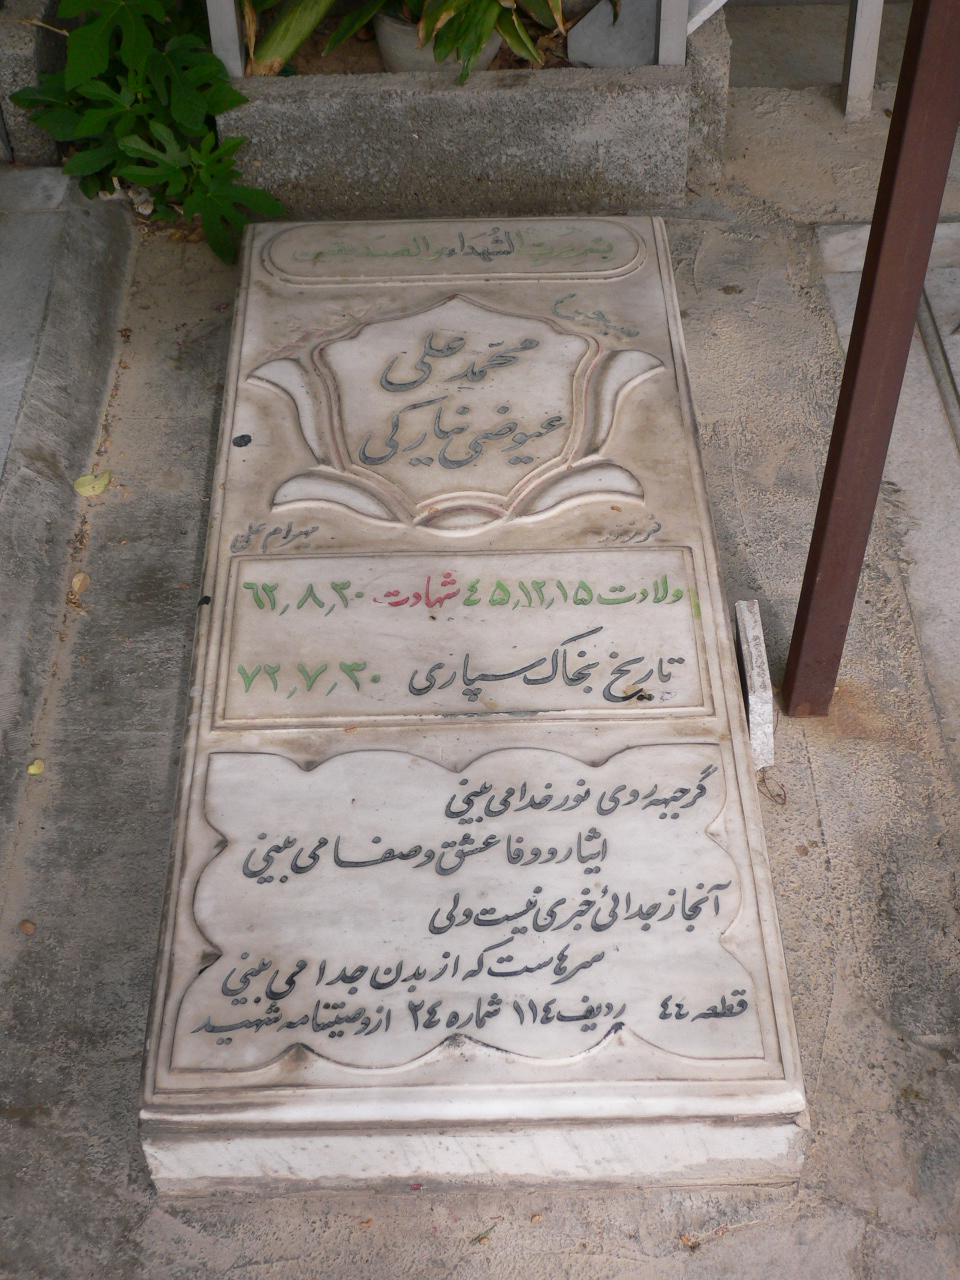 بسم رب الشهداء والصدیقین
محمد علی
عیوضی نیارکی
فرزند بهرام علی
ولادت ٤٥٫١٢٫١٥ شهادت ٦٢٫٨٫٣٠
تاریخ بخاک سپاری ٧٢٫٧٫٣٠
گر جبهه روی نور خدا می بینی
ایثار و وفا عشق و صفا می بینی
آنجا ز جدائی خبری نیست ولی
سرهاست که از بدن جدا می بینی
قطعه ٤٤ ردیف ١١٤ شماره ٢٤ از وصیتنامه شهید